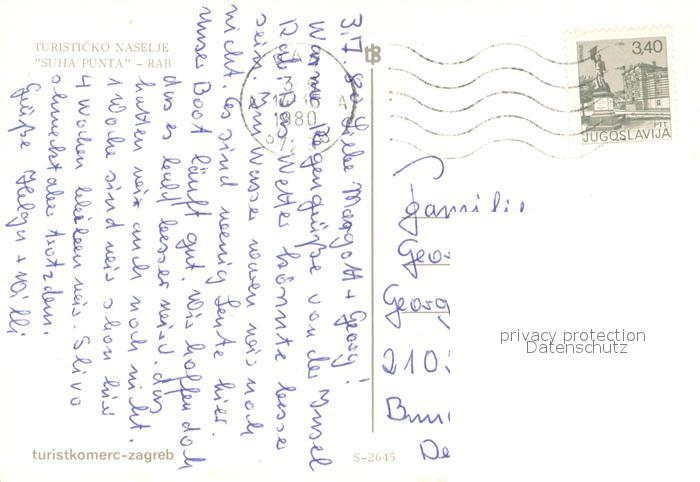 TURISTIČKO NASELJE
"SUHA PUNTA" – RAB
3.7.80 Liebe Margott + Georg!
Warme Regengrüße von der Insel
Rab. Das Wetter könnte besser
sein. Im Wasser waren wir noch
nicht. Es sind wenig Leute hier.
Unser Boot läuft gut. Wir hoffen doch
das es bald besser wird. das
hatten wir auch noch nicht.
1 Woche sind wir schon hier
4 Wochen bleiben wir. Slivo
schmeckt aber trotzdem.
Grüße Helga + Willi
turistkomerc-zagreb
S-2645
3
1980
3,40
PTT
JUGOSLAVIJA
Familie
Geor
Georg
210
De
privacy protection
Datenschutz